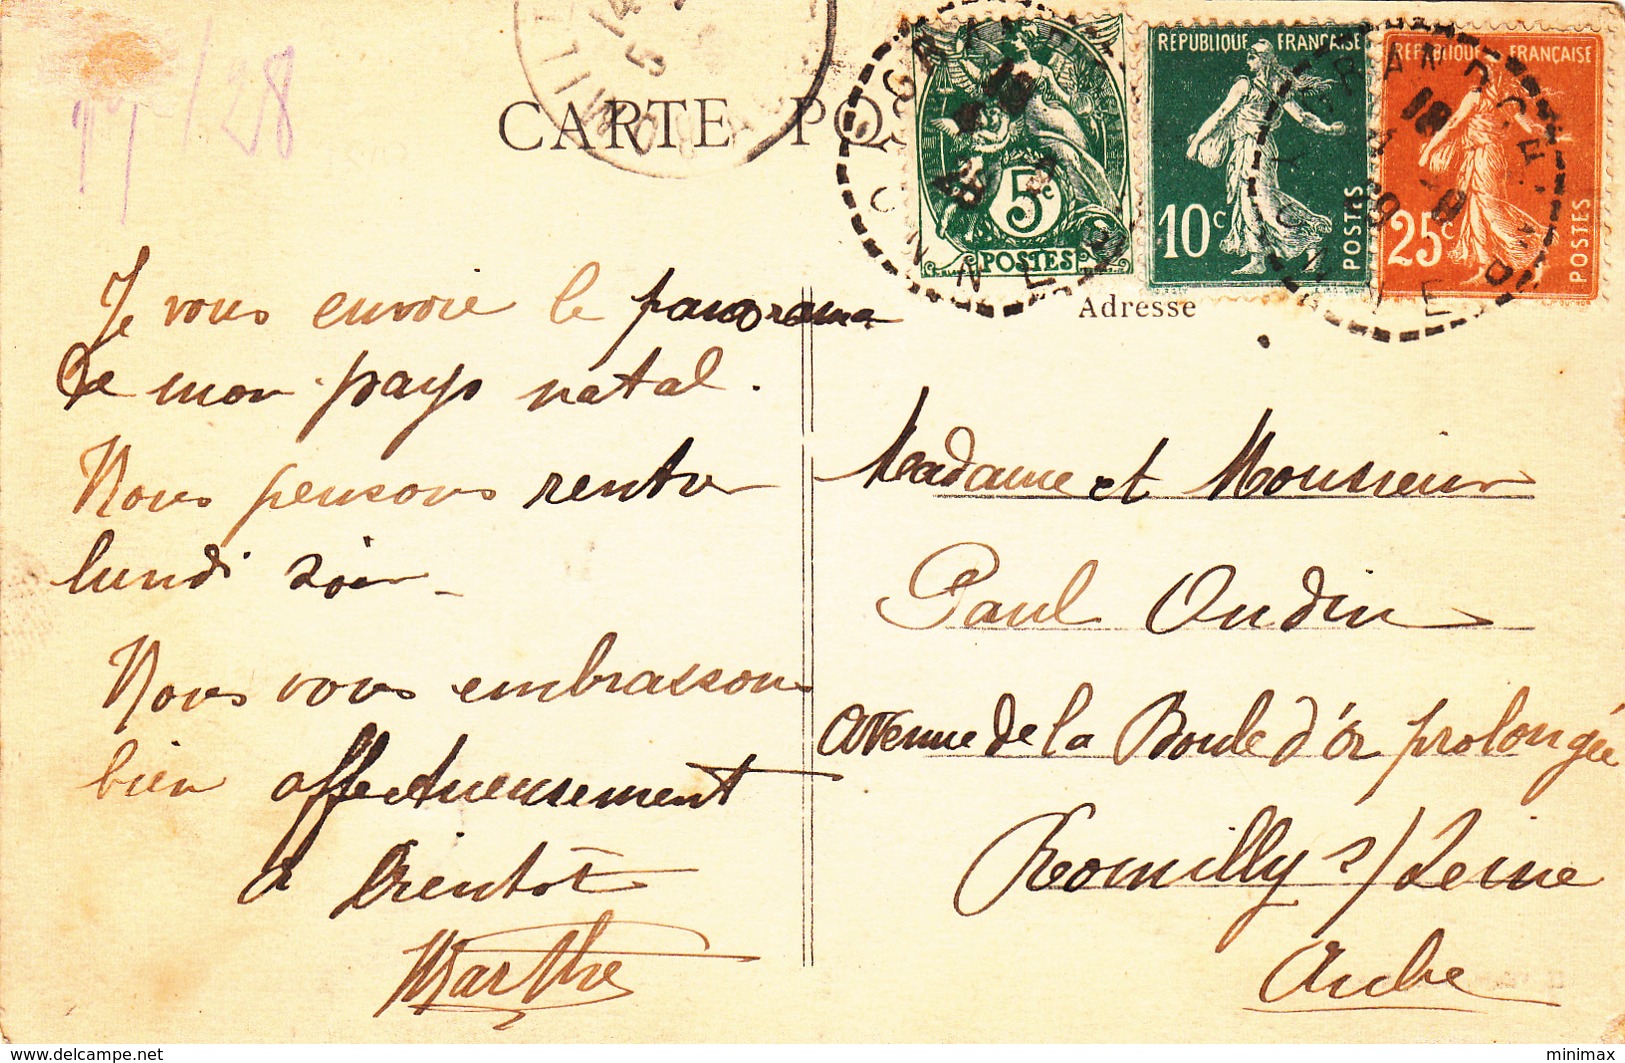 CARTE PO
5c
POSTES
RÉPUBLIQUE FRANÇAISE
10c
POSTES
RÉPUBLIQUE FRANÇAISE
25c
POSTES
Adresse
Je vous envoie le panorama
de mon pays natal.
Nous pensons rentrer
lundi soir -
Nous vous embrassons
bien affectueusement
à bientôt
Marthe
Madame et Monsieur
Paul Oudin
avenue de la Boule d'or prolongée
Romilly s/Seine
Aube
www.delcampe.net
minimax